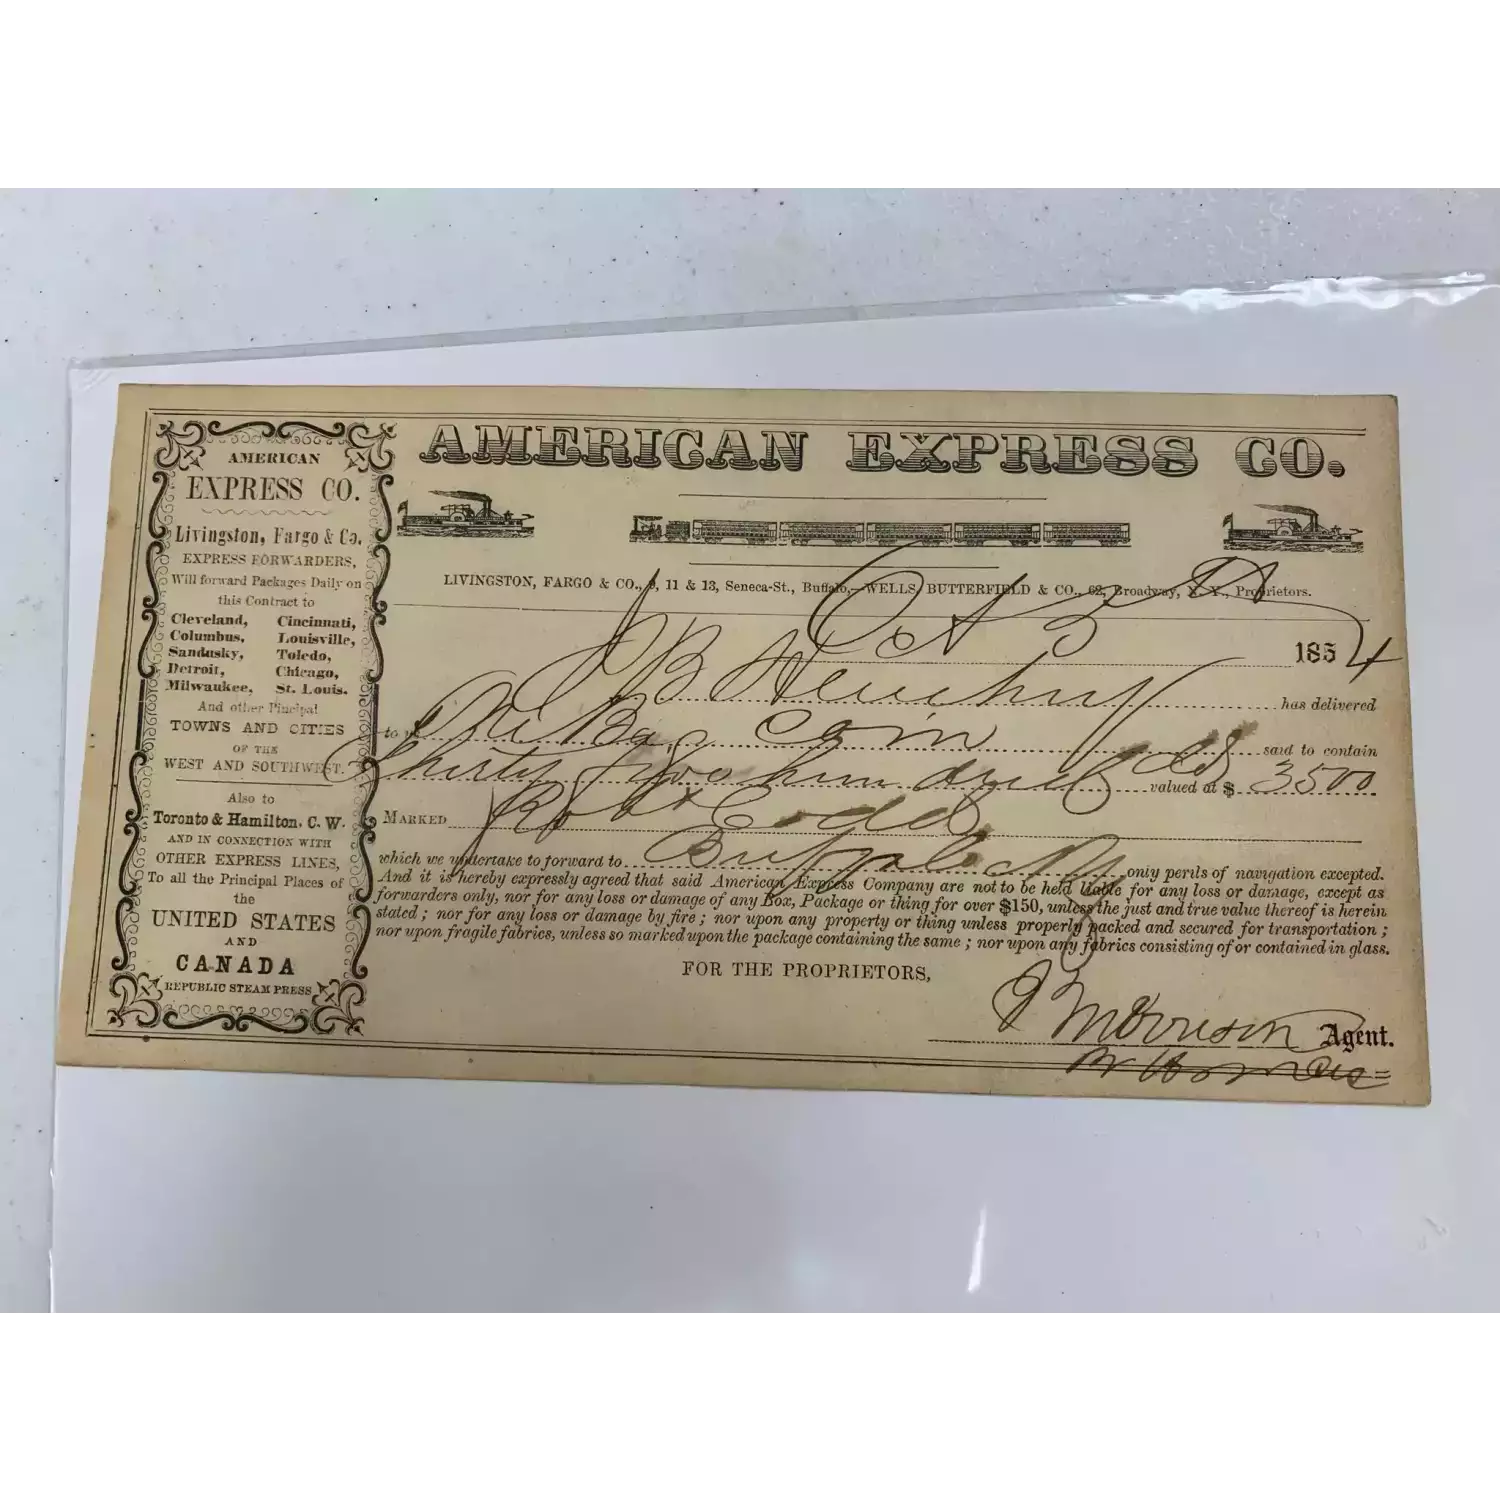 AMERICAN
EXPRESS CO.
Livingston, Fargo & Co.
EXPRESS FORWARDERS,
Will forward Packages Daily on
this Contract to
Cleveland, Cincinnati,
Columbus, Louisville,
Sandusky, Toledo,
Detroit, Chicago,
Milwaukee, St. Louis.
And other Pincipal
TOWNS AND CITIES
OF THE
WEST AND SOUTHWEST.
Also to
Toronto & Hamilton, C. W.
AND IN CONNECTION WITH
OTHER EXPRESS LINES,
To all the Principal Places of
the
UNITED STATES
AND
CANADA
REPUBLIC STEAM PRESS
AMERICAN EXPRESS CO.
LIVINGSTON, FARGO & CO., 9, 11 & 13, Seneca-St., Buffalo,—WELLS, BUTTERFIELD & CO., 62, Broadway, N. Y., Proprietors.
Oct 3 1854
J B has delivered
to us One Bag Coin said to contain
Thirty five hundred valued at $ 3500
MARKED Robt
which we undertake to forward to Buffalo NY only perils of navigation excepted.
And it is hereby expressly agreed that said American Express Company are not to be held liable for any loss or damage, except as
forwarders only, nor for any loss or damage of any Box, Package or thing for over $150, unless the just and true value thereof is herein
stated ; nor for any loss or damage by fire ; nor upon any property or thing unless properly packed and secured for transportation ;
nor upon fragile fabrics, unless so marked upon the package containing the same ; nor upon any fabrics consisting of or contained in glass.
FOR THE PROPRIETORS,
J Morrison Agent.